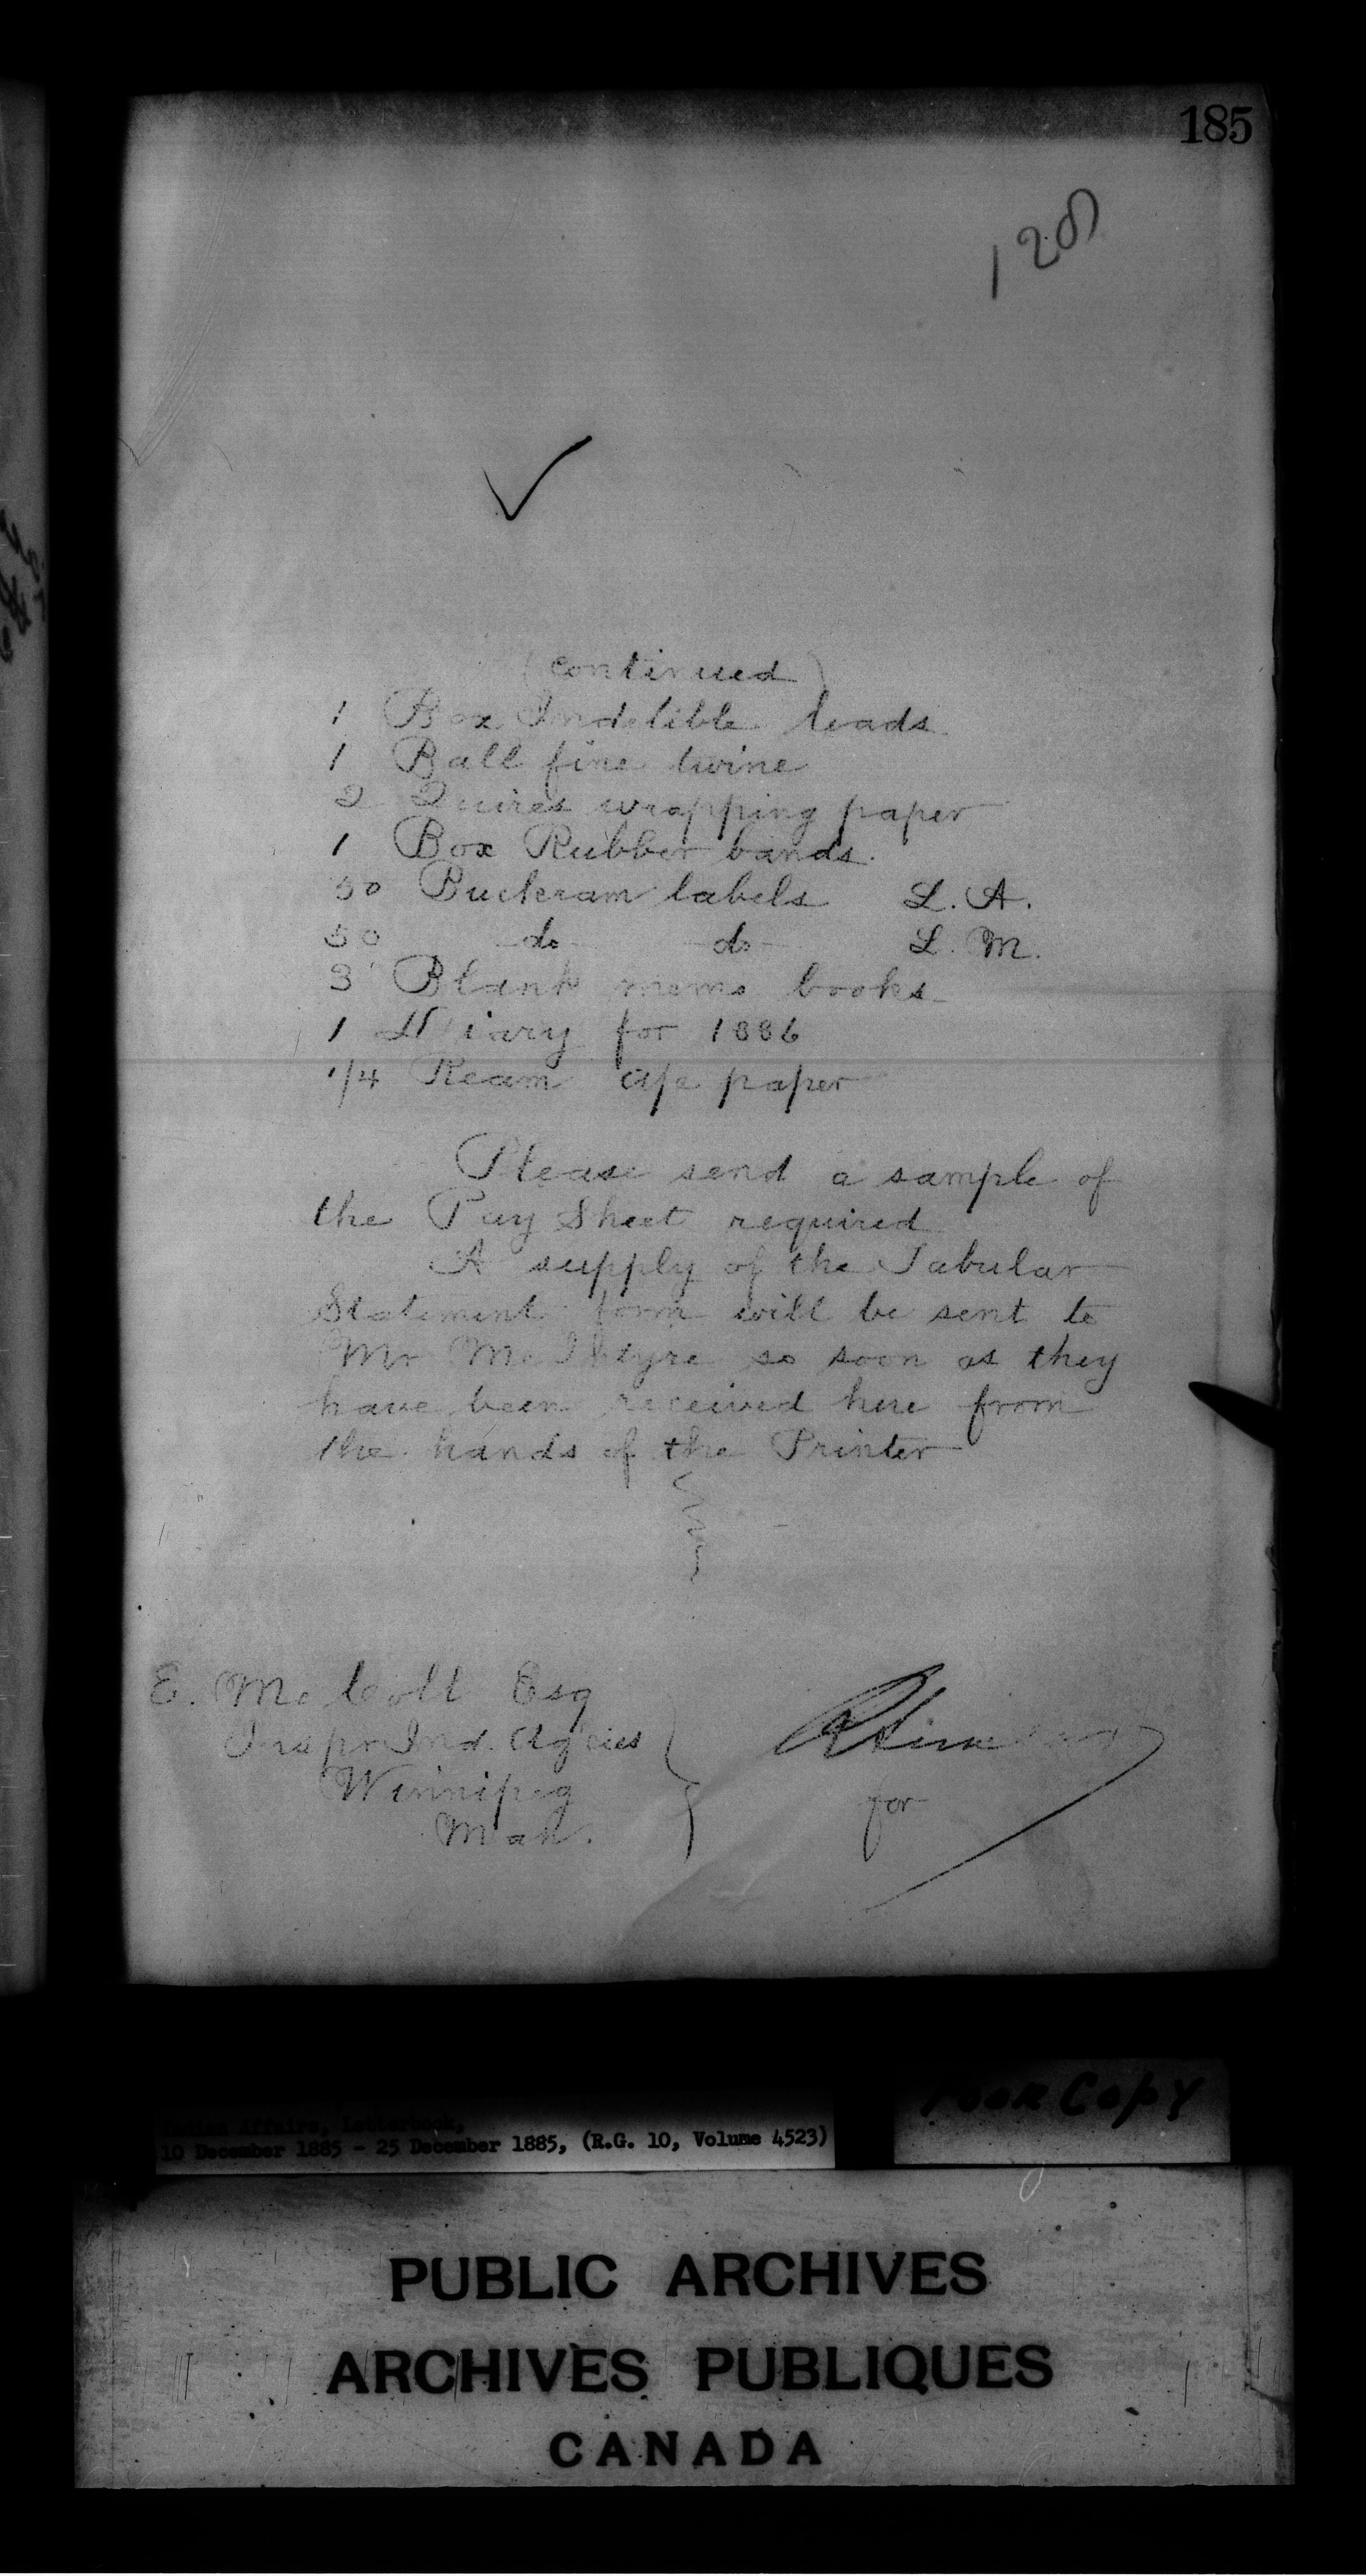 185
120
(continued)
1 Box Indelible leads
1 Ball fine twine
2 Quires wrapping paper
1 Box Rubber bands.
50 Buckram labels L. A.
50 do do L. M.
3 Blank memo books
1 Diary for 1886
1/4 Ream a/c paper
Please send a sample of
the Pay Sheet required
A supply of the Tabular
Statement form will be sent to
Mr McIntyre so soon as they
have been received here from
the hands of the Printer
E. McColl Esq
Inspr Ind. Agcies
Winnipeg
Man.
for
Indian Affairs, Letterbook,
10 December 1885 - 25 December 1885, (R.G. 10, Volume 4523)
Poor Copy
PUBLIC ARCHIVES
ARCHIVES PUBLIQUES
CANADA